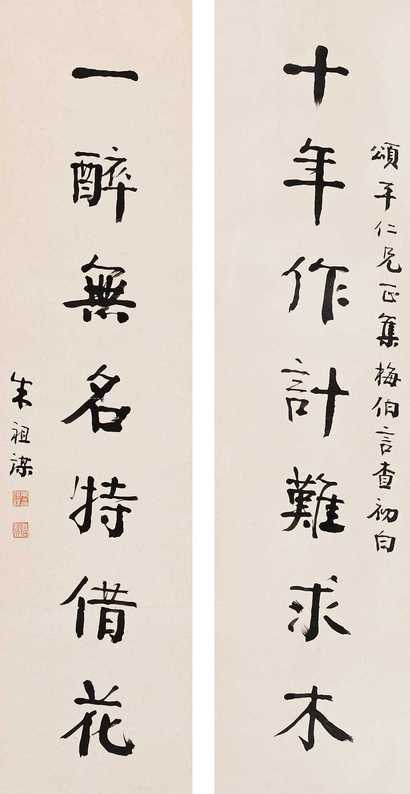 頌平仁兄正集梅伯言查初白
十年作計難求木
一醉無名特借花
朱祖謀